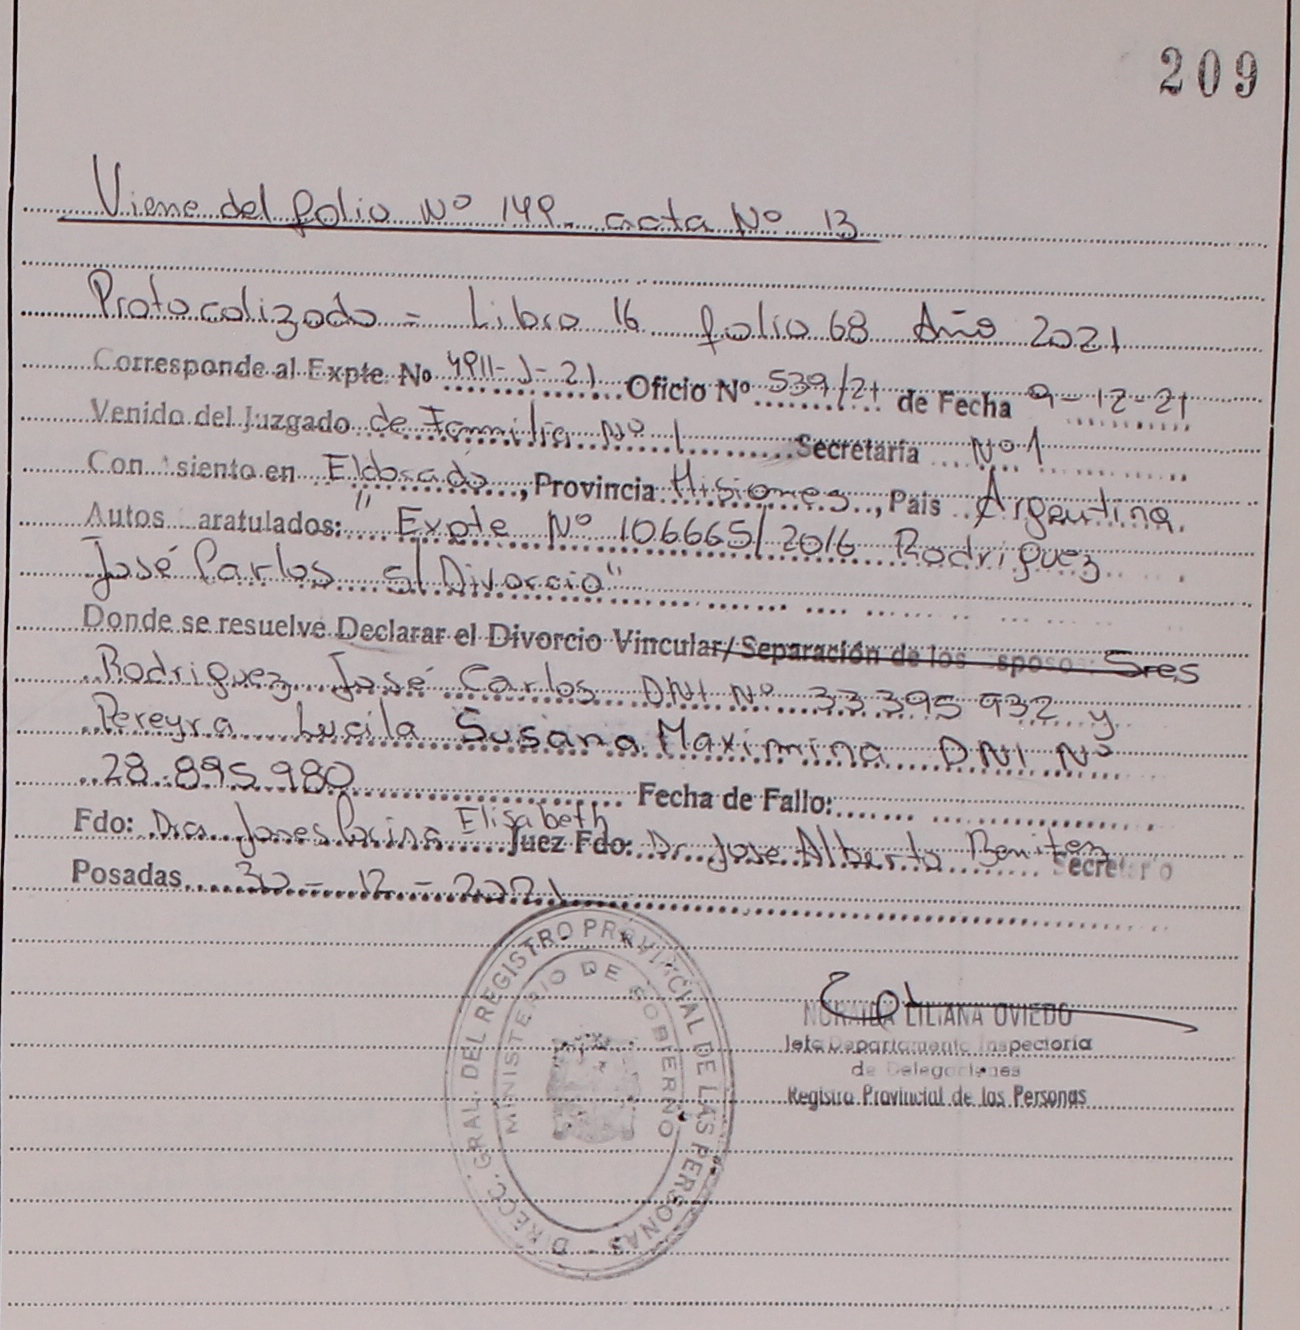 209
Viene del folio Nº 149 acta Nº 13
Protocolizado = Libro 16 folio 68 Año 2021
Corresponde al Expte. Nº 4911-J-21 Oficio Nº 539/21 de Fecha 9-12-21
Venido del Juzgado de Familia Nº 1 Secretaría Nº 1
Con siento en Eldorado, Provincia Misiones, País Argentina.
Autos aratulados: "Expte Nº 106665/2016 Rodriguez
José Carlos s/Divorcio"
Donde se resuelve Declarar el Divorcio Vincular/Separación de los sposos Sres
Rodriguez José Carlos DNI Nº 33.395.932 y
Pereyra Lucila Susana Maximina DNI Nº
28.895.980 Fecha de Fallo:
Fdo: Dra. Elisabeth Juez Fdo: Dr. Jose Alberto Benitez Secretario
Posadas 30-12-2021
DIRECC. GRAL. DEL REGISTRO PROVINCIAL DE LAS PERSONAS
MINISTERIO DE GOBIERNO
NORAIDA LILIANA OVIEDO
Jefa Departamento Inspectoria
de Delegaciones
Registro Provincial de las Personas